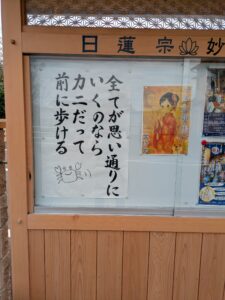 日蓮宗 妙
全てが思い通りに
いくのなら
カニだって
前に歩ける